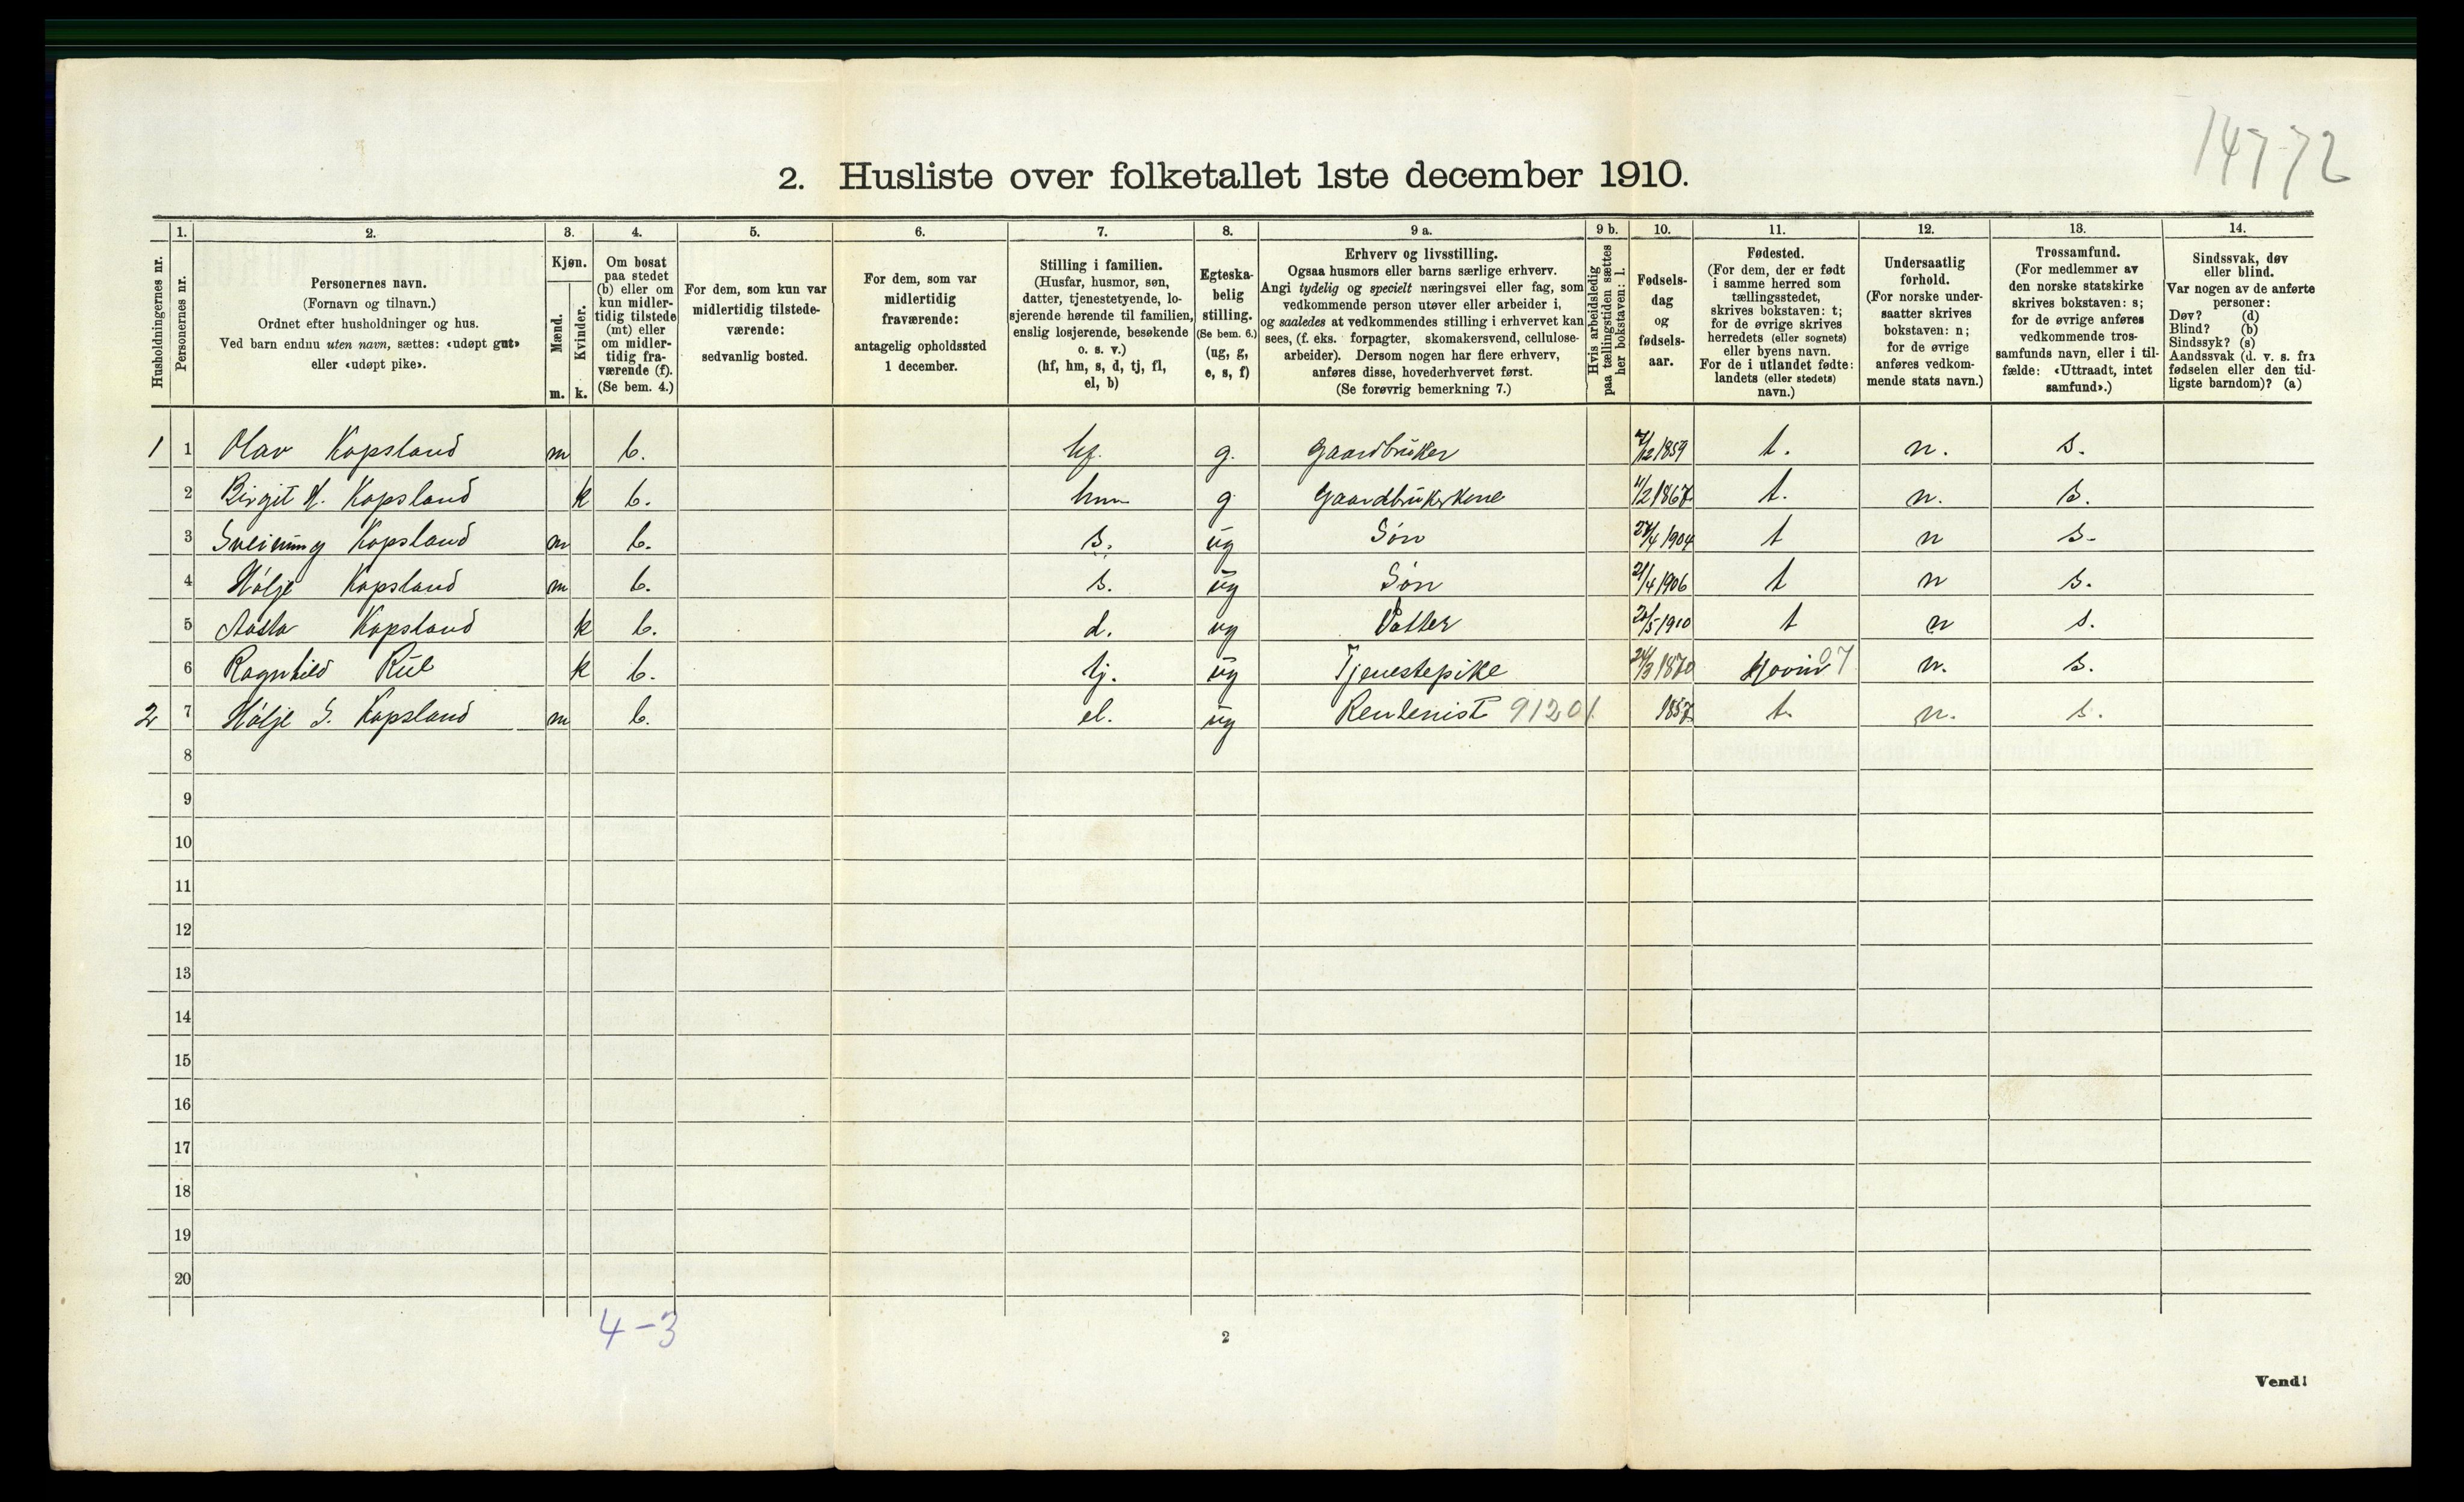 147-72
2. Husliste over folketallet 1ste december 1910.
Husholdningernes nr.
1.
Personernes nr.
2.
Personernes navn.
(Fornavn og tilnavn.)
Ordnet efter husholdninger og hus.
Ved barn endnu uten navn, sættes: «udøpt gut»
eller «udøpt pike».
3.
Kjøn.
Mænd.
Kvinder.
m. k.
4.
Om bosat
paa stedet
(b) eller om
kun midler-
tidig tilstede
(mt) eller
om midler-
tidig fra-
værende (f).
(Se bem. 4.)
5.
For dem, som kun var
midlertidig tilstede-
værende:
sedvanlig bosted.
6.
For dem, som var
midlertidig
fraværende:
antagelig opholdssted
1 december.
7.
Stilling i familien.
(Husfar, husmor, søn,
datter, tjenestetyende, lo-
sjerende hørende til familien,
enslig losjerende, besøkende
o. s. v.)
(hf, hm, s, d, tj, fl,
el, b)
8.
Egteska-
belig
stilling.
(Se bem. 6.)
(ug, g,
e, s, f)
9 a.
Erhverv og livsstilling.
Ogsaa husmors eller barns særlige erhverv.
Angi tydelig og specielt næringsvei eller fag, som
vedkommende person utøver eller arbeider i,
og saaledes at vedkommendes stilling i erhvervet kan
sees, (f. eks. forpagter, skomakersvend, cellulose-
arbeider). Dersom nogen har flere erhverv,
anføres disse, hovederhvervet først.
(Se forøvrig bemerkning 7.)
9 b.
Hvis arbeidsledig
paa tællingstiden sættes
her bokstaven: l.
10.
Fødsels-
dag
og
fødsels-
aar.
11.
Fødested.
(For dem, der er født
i samme herred som
tællingsstedet,
skrives bokstaven: t;
for de øvrige skrives
herredets (eller sognets)
eller byens navn.
For de i utlandet fødte:
landets (eller stedets)
navn.)
12.
Undersaatlig
forhold.
(For norske under-
saatter skrives
bokstaven: n;
for de øvrige
anføres vedkom-
mende stats navn.)
13.
Trossamfund.
(For medlemmer av
den norske statskirke
skrives bokstaven: s;
for de øvrige anføres
vedkommende tros-
samfunds navn, eller i til-
fælde: «Uttraadt, intet
samfund».)
14.
Sindssvak, døv
eller blind.
Var nogen av de anførte
personer:
Døv? (d)
Blind? (b)
Sindssyk? (s)
Aandssvak (d. v. s. fra
fødselen eller den tid-
ligste barndom)? (a)
1 1 Olav Kopsland m b. hf. g. Gaardbruker 1859 t. n. s.
2 Birgit H. Kopsland k b. hm g Gaardbrukerkone 11/2 1867 t. n. s.
3 Sveinung Kopsland m b. s. ug Søn 27/4 1904 t n s.
4 Hølje Kopsland m b. s. ug Søn 21/4 1906 t n s.
5 Aasta Kopsland k b. d. ug Datter 1910 t n s.
6 Ragnhild k b. tj. ug Tjenestepike 24/3 1870 Hovin 07 n. s.
2 7 Hølje S. Kopsland m b. el. ug Rentenist 9120 1. 1857 t. n. s.
8
9
10
11
12
13
14
15
16
17
18
19
20
4-3
2
Vend!